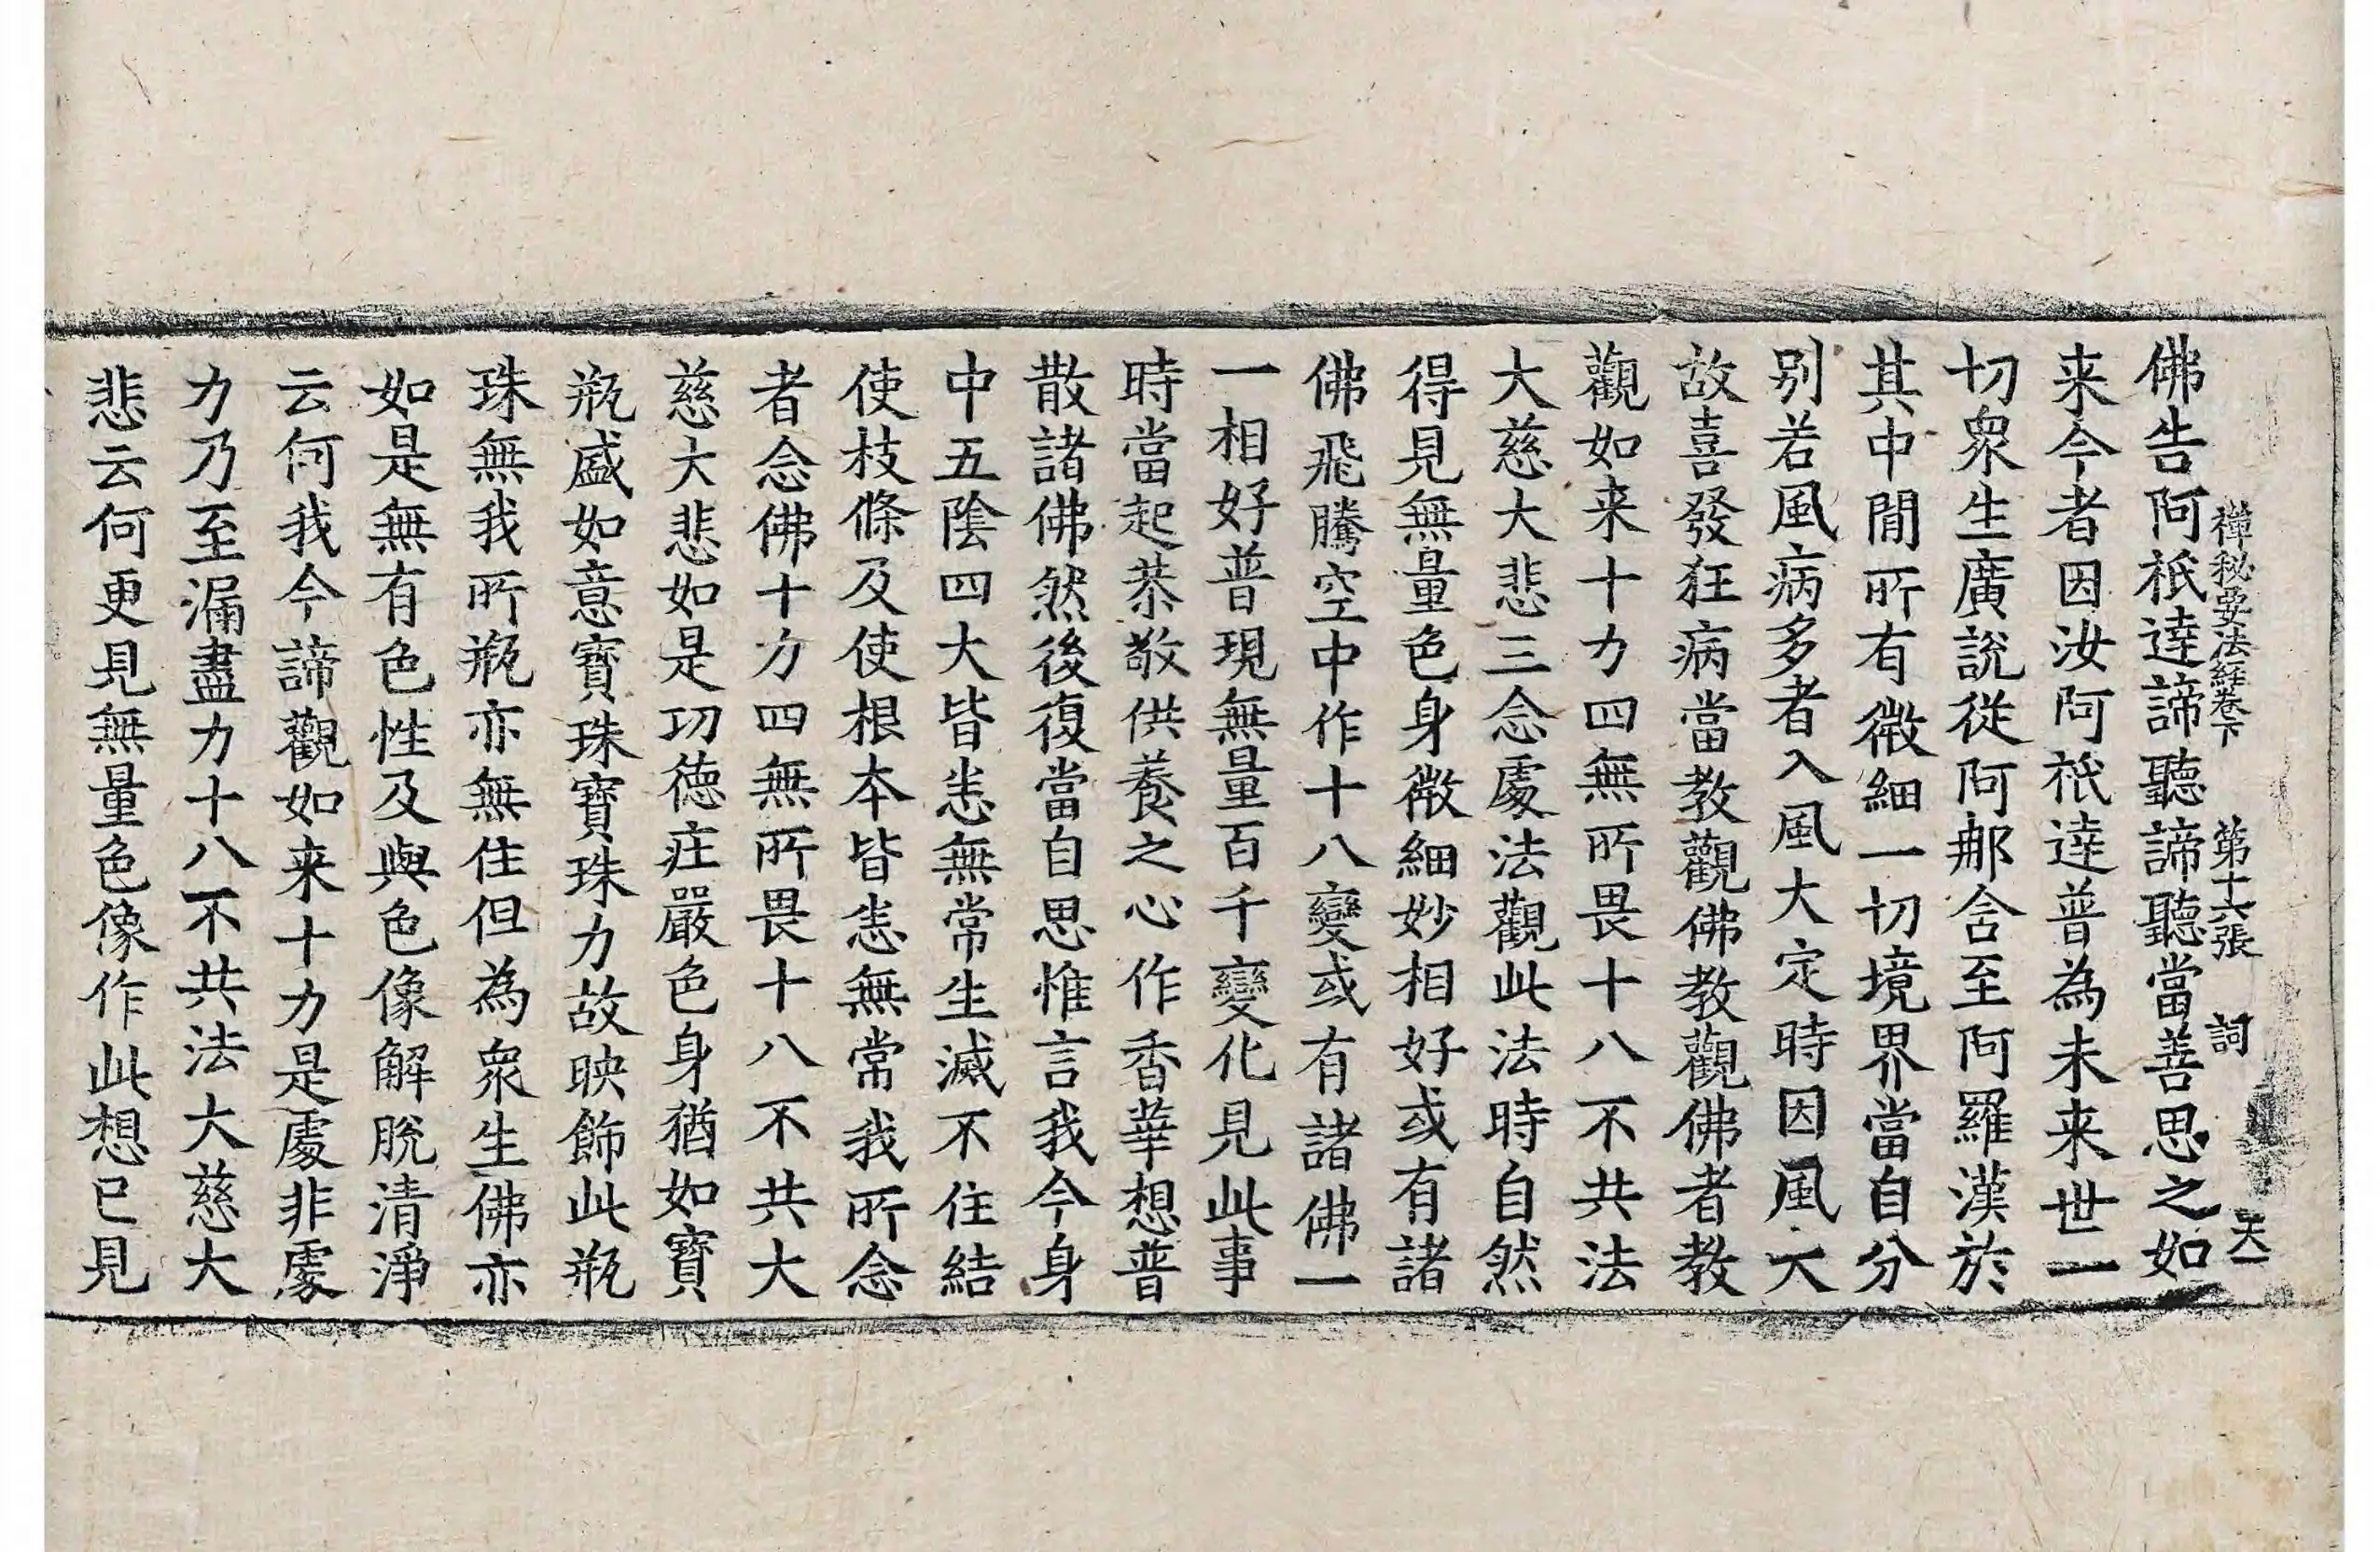 禪秘要法經卷下　第十六張　詞　天一
佛告阿祇達諦聽諦聽當善思之如
来今者因汝阿祇達普為未来世一
切衆生廣說從阿那含至阿羅漢於
其中閒所有微細一切境界當自分
别若風病多者入風大定時因風大
故喜發狂病當教觀佛教觀佛者教
觀如来十力四無所畏十八不共法
大慈大悲三念處法觀此法時自然
得見無量色身微細妙相好或有諸
佛飛騰空中作十八變或有諸佛一
一相好普現無量百千變化見此事
時當起恭敬供養之心作香華想普
散諸佛然後復當自思惟言我今身
中五陰四大皆悉無常生滅不住結
使枝條及使根本皆悉無常我所念
者念佛十力四無所畏十八不共大
慈大悲如是功德莊嚴色身猶如寶
瓶盛如意寶珠寶珠力故映飾此瓶
珠無我所瓶亦無住但為衆生佛亦
如是無有色性及與色像解脫清淨
云何我今諦觀如来十力是處非處
力乃至漏盡力十八不共法大慈大
悲云何更見無量色像作此想已見